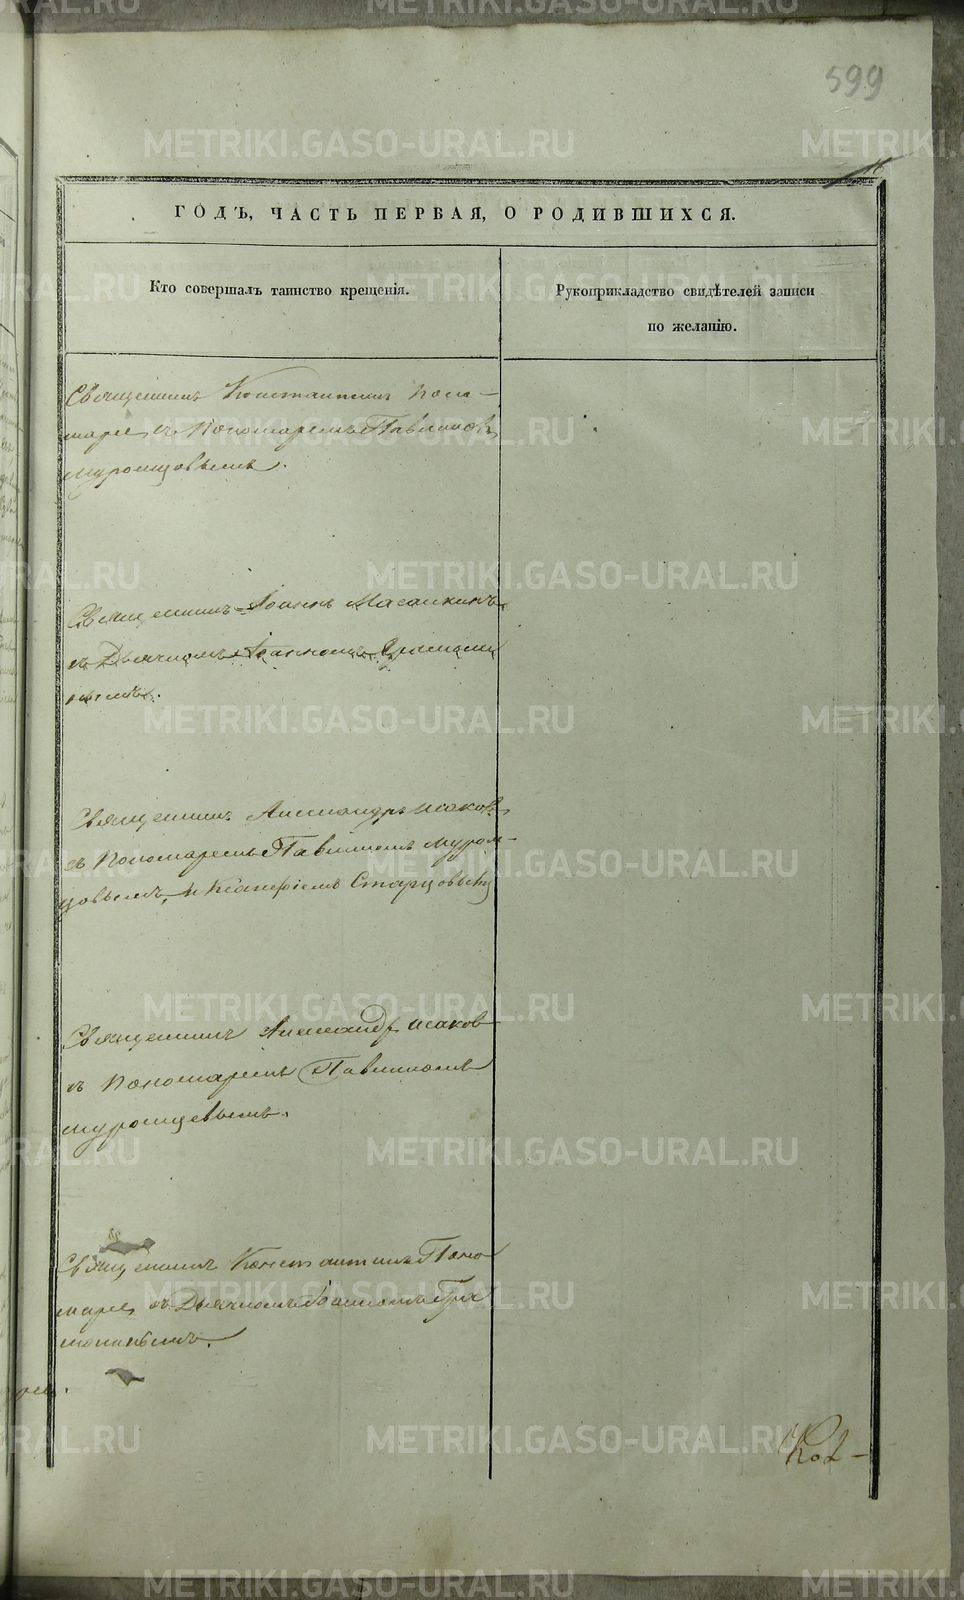 599
16
ГОДЪ, ЧАСТЬ ПЕРВАЯ, О РОДИВШИХСЯ.
Кто совершалъ таинство крещенія.
Рукоприкладство свидѣтелей записи
по желанію.
Священникъ Константинъ Поно-
маревъ Пономаремъ Павлиномъ
Муромцовымъ.
Священникъ Іоаннъ
съ Дьячкомъ Іоанномъ
Священникъ Александръ Исаковъ
съ Пономаремъ Павлиномъ Муром-
цовымъ, и Ксанфіемъ Старцовымъ
Священникъ Александръ Исаковъ
съ Пономаремъ Павлиномъ
Муромцевымъ.
Священникъ Константинъ Поно
маревъ съ Дьячкомъ Іоанномъ
METRIKI.GASO-URAL.RU